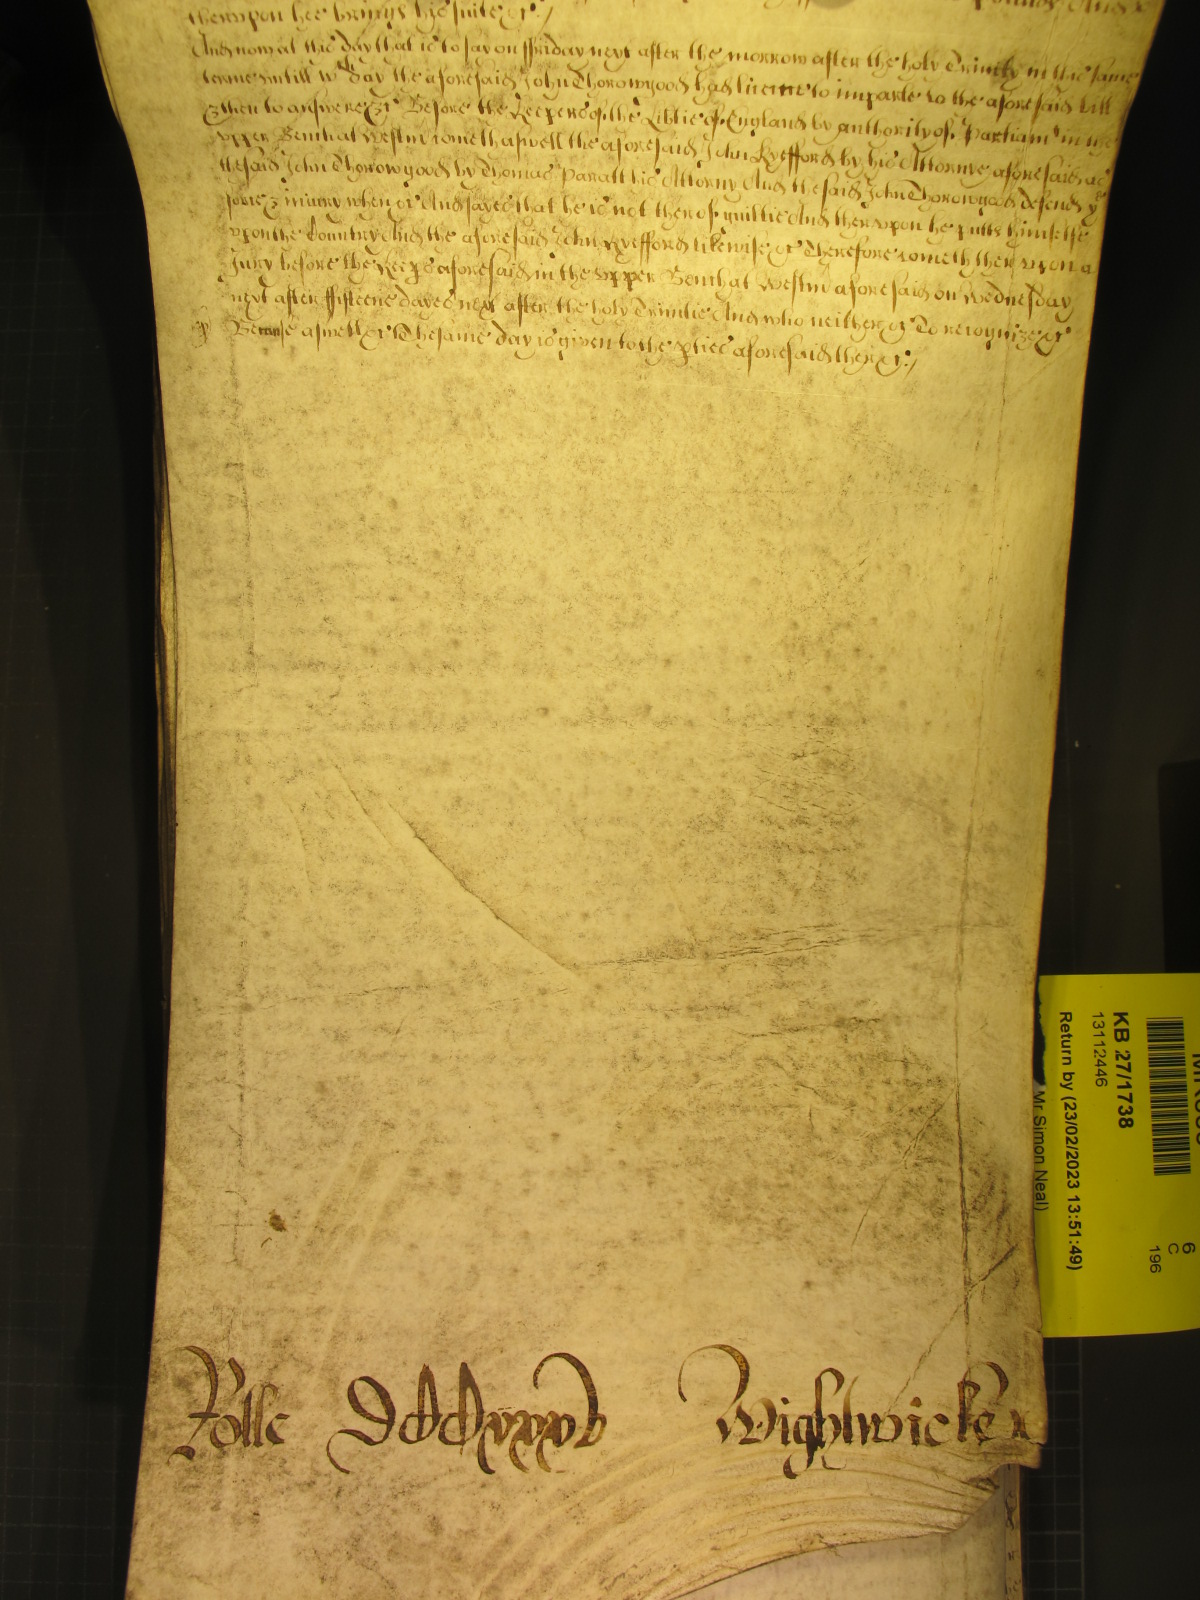 therupon hee brings his suite &c:/
And now at this day that is to say on Friday next after the morrow after the holy Trinity in this same
terme untill wch day the aforesaid John Thorowgood had licence to imparle to the aforesaid bill
& then to answere &c Before the Keepers of the Libtie of England by authority of Parliamt in the
upper Bench at Westm cometh aswell the aforesaid John Kyefford by his Attorney aforesaid as
thesaid John Thorowgood by Thomas Paratt his Attorny And thesaid John Thorowgood defends ye
force & iniury when &c And sayes that he is not therof guiltie And therupon he putts himselfe
upon the Country And the aforesaid John Kyefford likewise &c Therefore cometh therupon a
Jury before the Keeps aforesaid in the upper Bench at Westm aforesaid on Wednesday
next after fifteene dayes next after the holy Trinitie And who neither &c To recognize &c
Because aswell &c Thesame day is given to the pties aforesaid ther &c:/
Rolle Wightwicke
KB 27/1738
13112446
Return by (23/02/2023 13:51:49)
Mr Simon Neal)
6
C
196